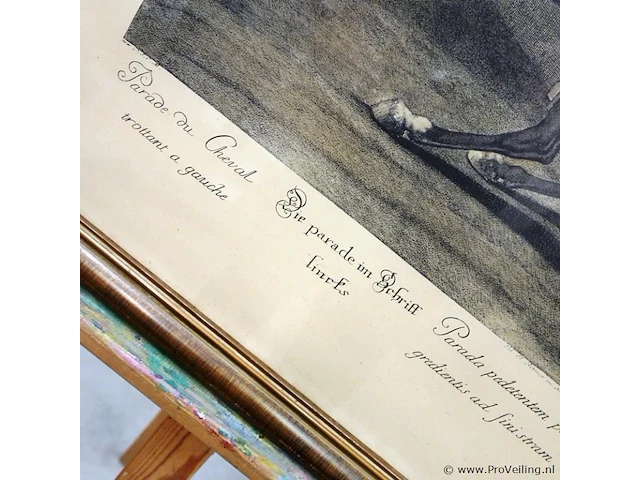 Parade du Cheval
trottant a gauche
Die parade im Schritt
lincks
Parada pedetentem
gredientis ad sinistram
© www.ProVeiling.nl